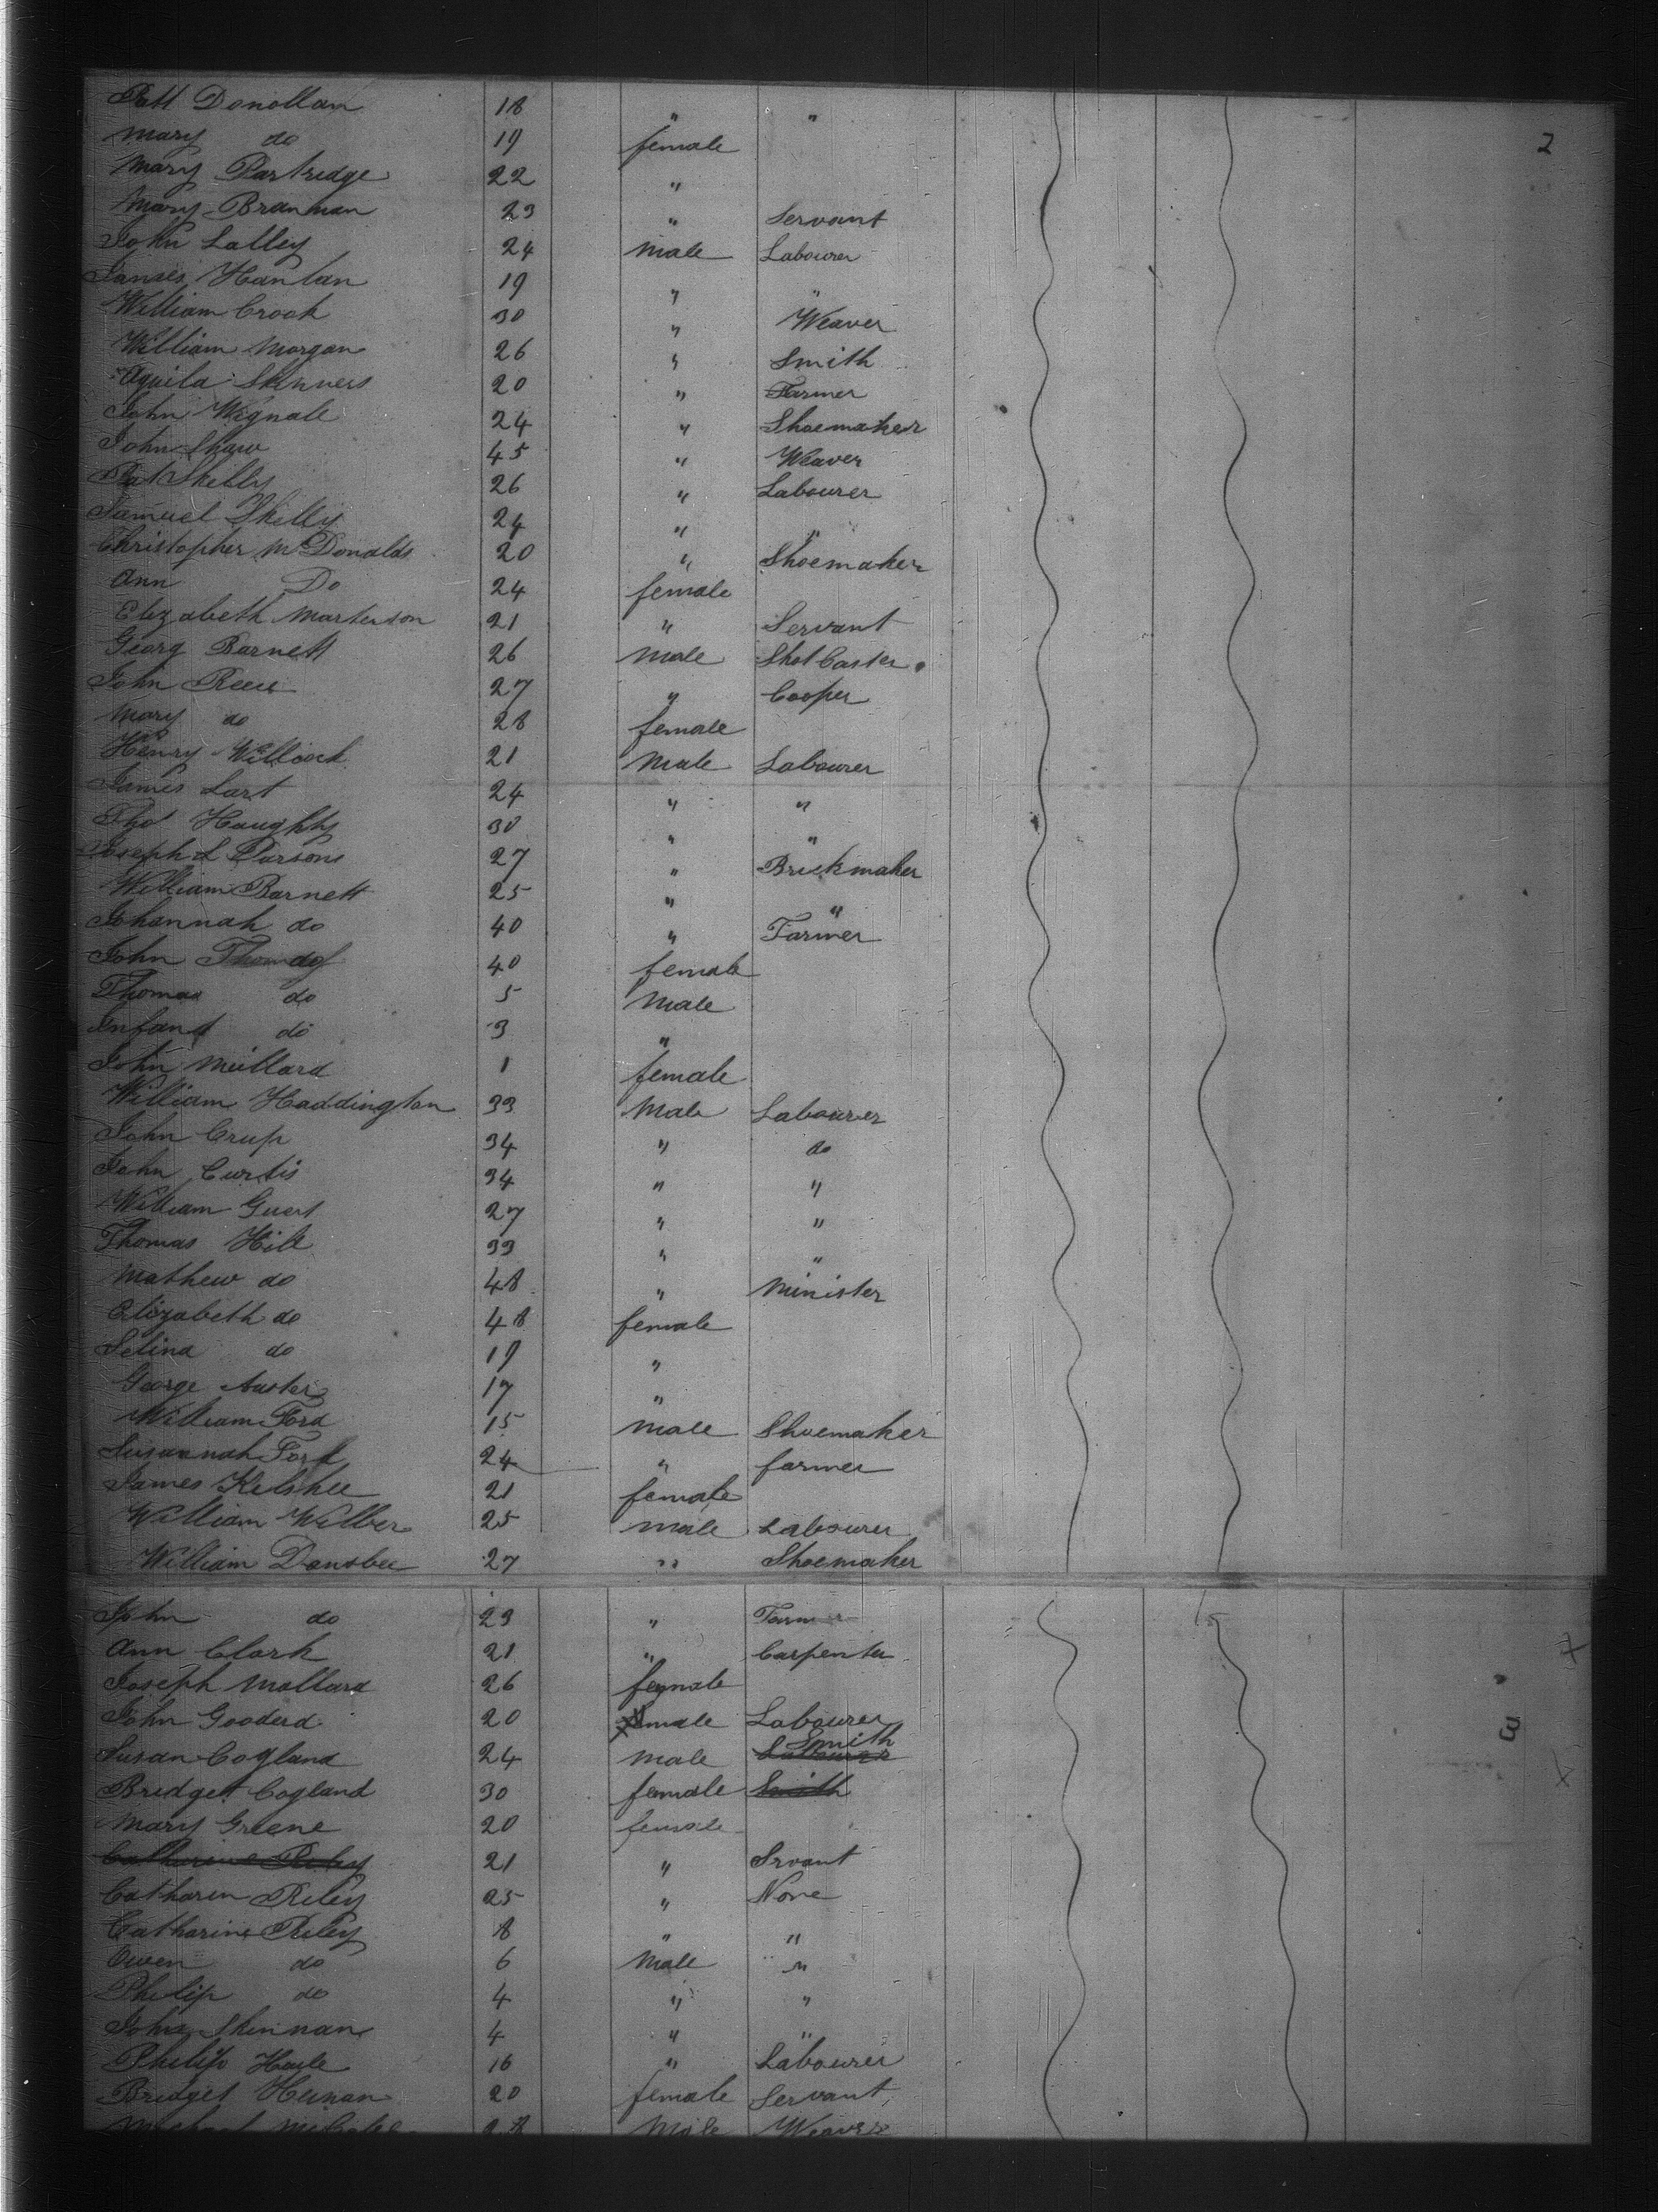 Patt Donollan 18 " "
Mary do 19 female
Mary Partridge 22 "
Mary Brannan 23 " Servant
John Lalley 24 Male Labourer
James Hanlan 19 " "
William Crook 30 " Weaver
William Morgan 26 " Smith
Aquila Skinners 20 " Farmer
John Wignale 24 " Shoemaker
John Shaw 45 " Weaver
Pat Skelly 26 " Labourer
Samuel Skelly 24 " "
Christopher McDonalds 20 " Shoemaker
Ann Do 24 female
Elizabeth Marterson 21 " Servant
Georg Barnett 26 Male Shot Caster
John Reece 27 " Cooper
Mary do 28 female
Henry Willcock 21 Male Labourer
James Lart 24 " "
Thos Haughty 30 " "
Joseph L Parsons 27 " Brickmaker
William Barnett 25 " "
Johannah do 40 " Farmer
John 40 female
Thomas do 5 Male
Infant do 3 "
John Meillard 1 female
William Haddington 33 Male Labourer
John Crup 34 " do
John Curtis 34 " "
William Guest 27 " "
Thomas Hill 33 " "
Mathew do 48 " Minister
Elizabeth do 48 female
Selina do 19 "
George Auster 17 "
William Ford 15 Male Shoemaker
Susannah Ford 24 " farmer
James Kelshee 21 female
William Wilber 25 male Labourer
William Dansbee 27 " Shoemaker
John do 23 " Farmer
Ann Clark 21 " Carpenter
Joseph Mollard 26 female
John Gooderd 20 male Labourer
Smith
Susan Cogland 24 male Labourer
Bridget Cogland 30 female Smith
Mary Greene 20 female
Catherine Riley 21 " Srvant
Catharin Riley 25 " None
Catharine Riley 8 " "
Owen do 6 Male "
Philip do 4 " "
John Skinnan 4 " "
Philip Hayle 16 " Labourer
Bridget Heenan 20 female Servant
Michael 28 Male Weaver
2
3